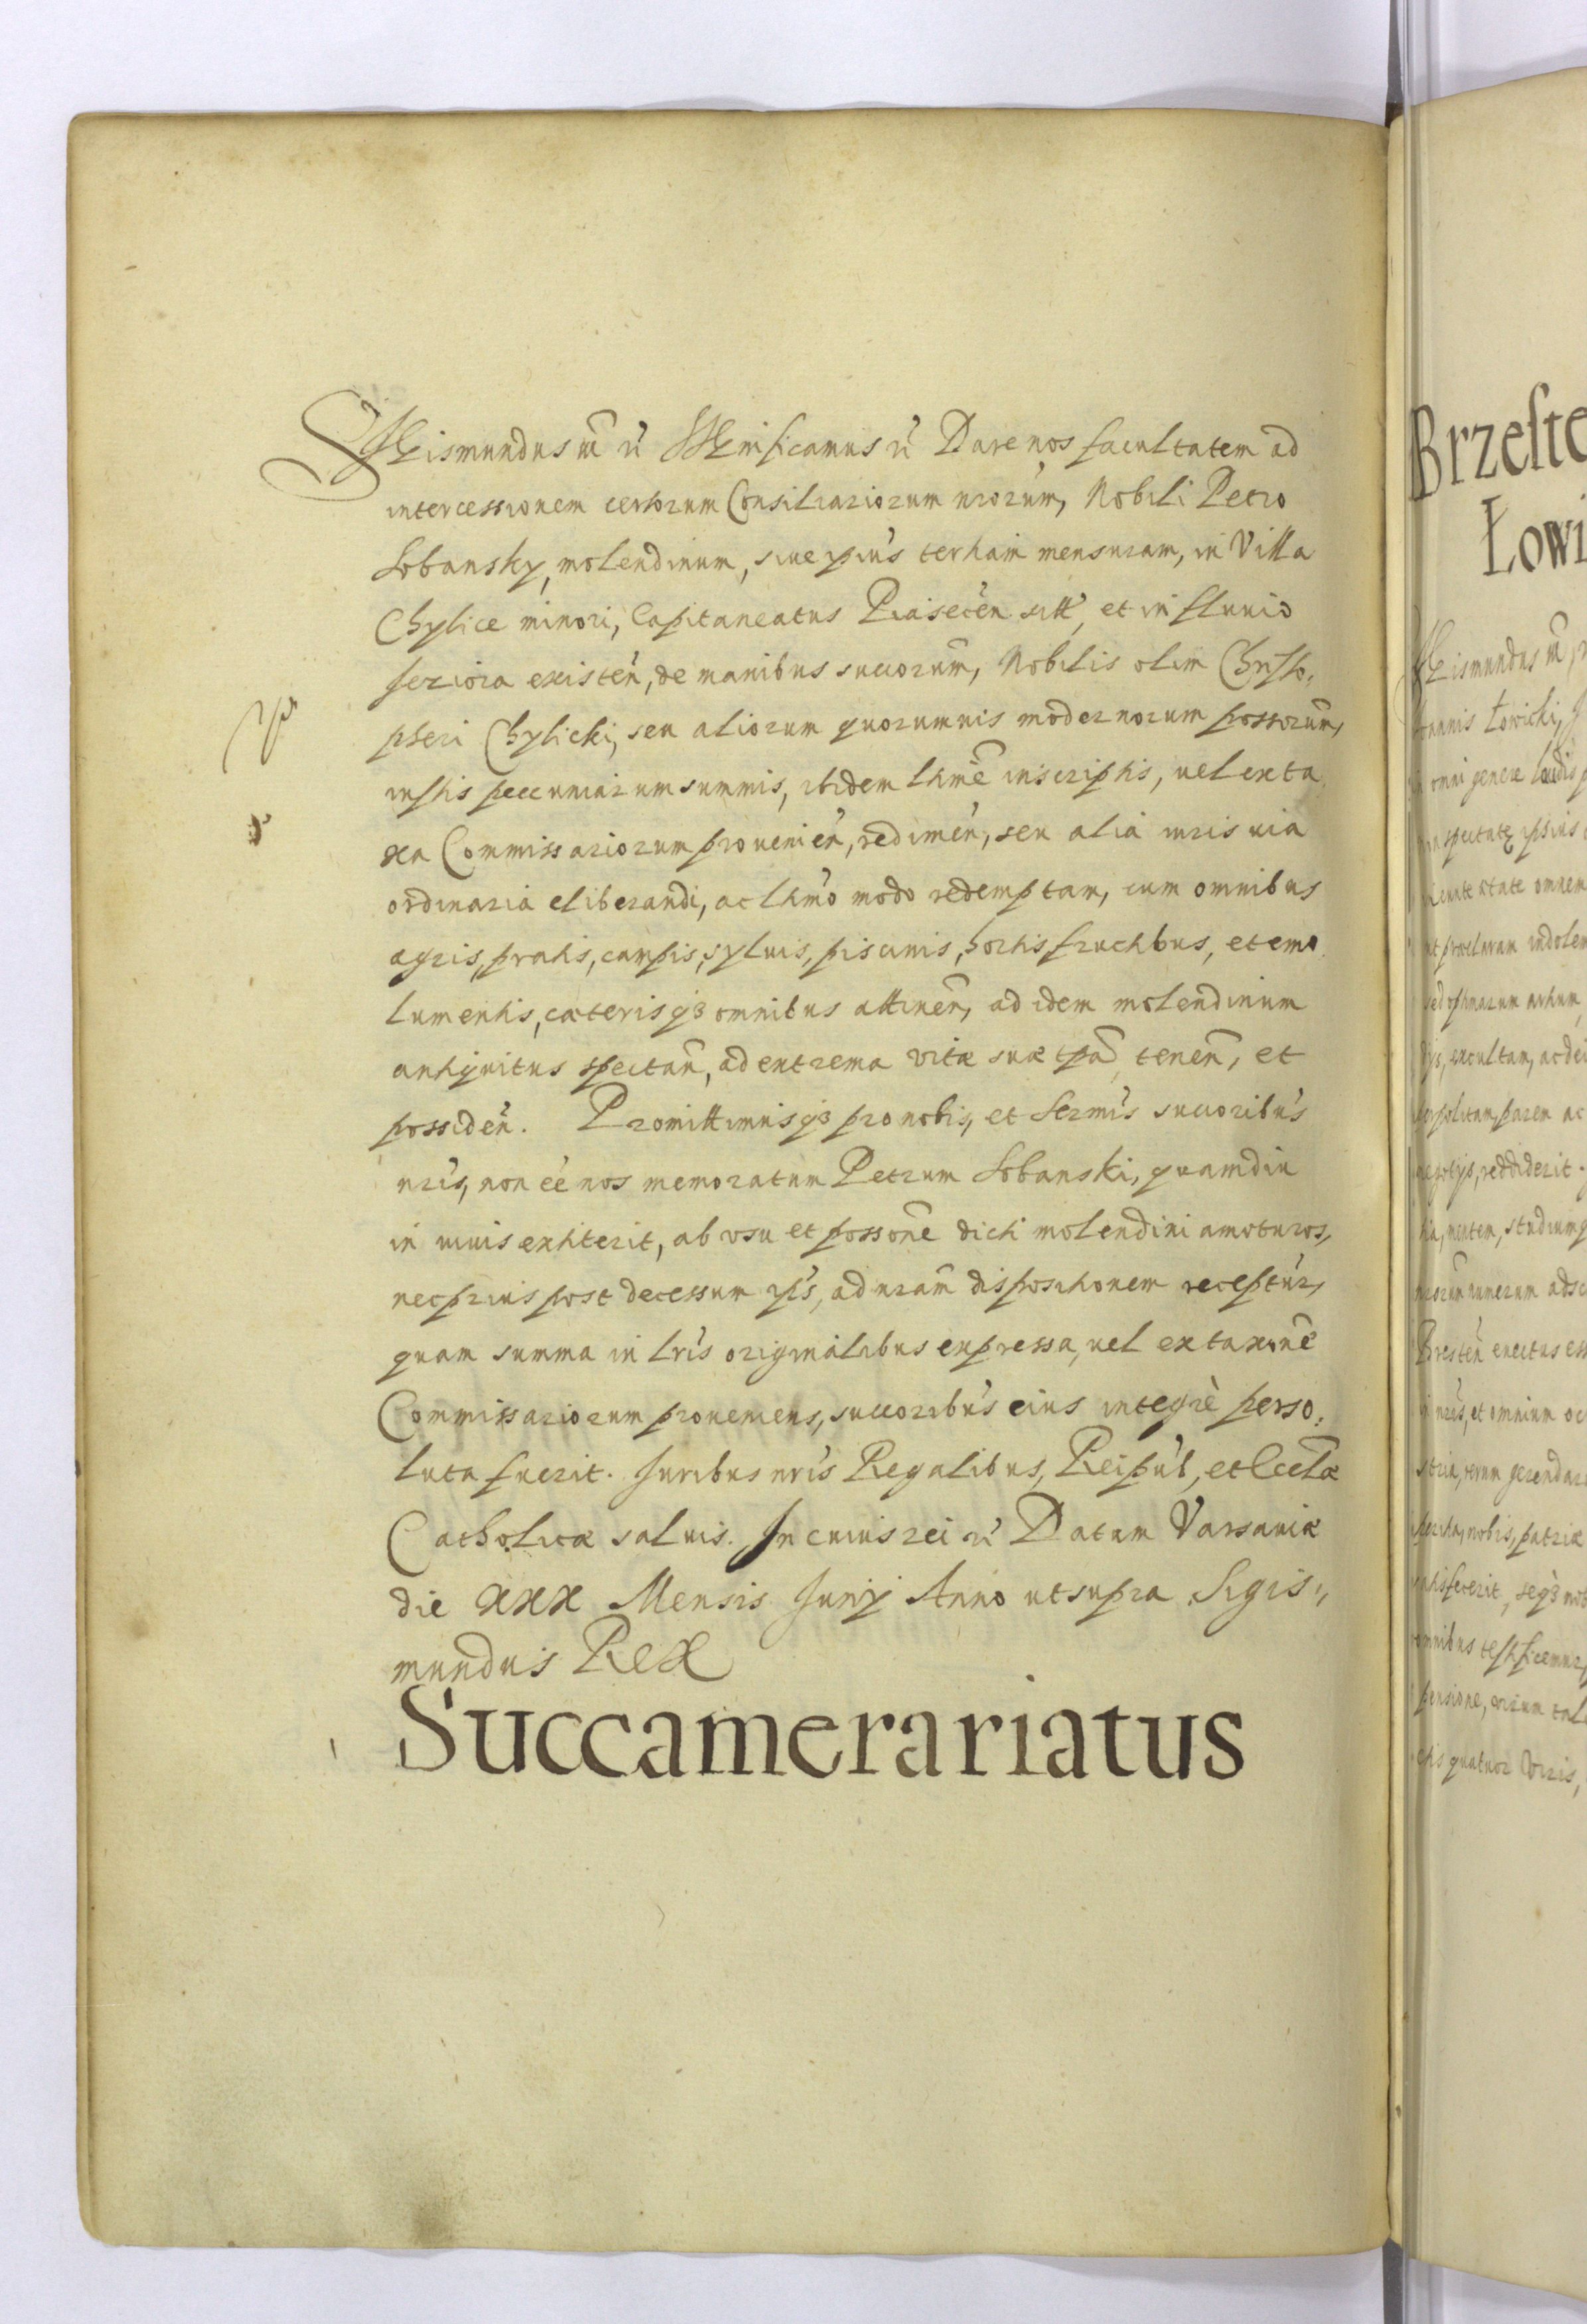 Sigismundus m̃ r̃ Significamus r̃ Dare nos facultatem ad
intercessionem certorum Consiliariorum nrorum, Nobili Petro
Sobansky, molendinum, siue ipius tertiam mensuram, in Villa
Chylice minori, Capitaneatus Piasecen sitt, et in fluuio
Jeziora existen, de manibus succorum, Nobilis olim Christo,
pheri Chylicki, seu aliorum quorumuis modernorum possorum,
iustis pecuniarum summis, ibidem lttime inscriptis, uel ex ta
xa Commissariorum prouenien, redimen, seu alia iuris uia
ordinaria eliberandi, ac lttimo modo redemptam, cum omnibus
agris, pratis, campis, syluis, piscinis, hortis fructibus, et emo
lumentis, cæterisq3 omnibus attinen, ad idem molendinum
antiquitus spectan, ad extrema vitæ suæ tpa, tenen, et
possiden. Promittimusq3 pro nobis, et Sermis succoribus
nris, non ee nos memoratum Petrum Sobanski, quamdiu
in uiuis extiterit, ab vsu et possone dicti molendini amoturos,
nec prius post decessum ipis, ad nram dispositionem receptur,
quam summa in lris originalibus expressa, uel ex taxone
Commissariorum proueniens, succoribus eius integrè perso,
luta fuerit. Juribus nris Regalibus, Reipub, et Eccle
Catholicæ saluis. In cuius rei r̃ Datum Varsauiæ
die XXX Mensis Junij Anno ut supra Sigis,,
mundus Rex
Succamerariatus
Brzeste
Łowi
Sigismundus m̃
annis Łowicki,
omni genere laudis
spectatæ ipsius
state omnem
præclaram indolem
sed optimarum artium
excultam, ac dei
politam, parem ac
reddiderit.
mentem, studiumq
nrorum numerum adsc
Bresten euectus ess
nris, et omnium oc
rerum gerendar
nobis, patriæ
fecerit, seq3 nob
omnibus testificemur,
pensione,
quatuor